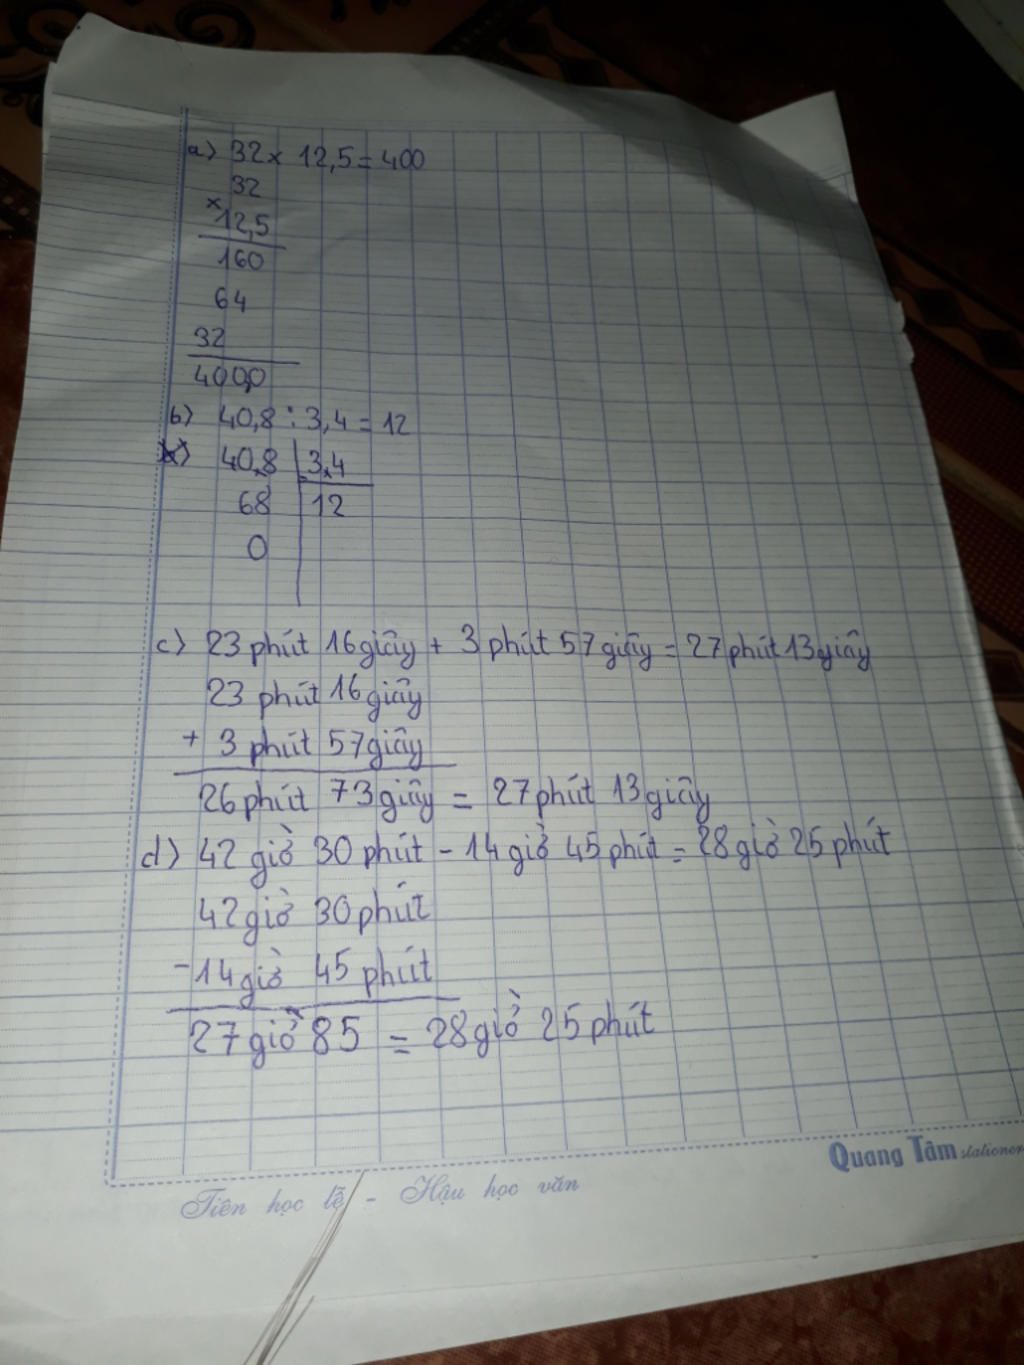 a) 32 x 12,5 = 400
32
x
12,5
160
64
32
400,0
b) 40,8 : 3,4 = 12
40,8 3,4
68 12
0
c) 23 phút 16 giây + 3 phút 57 giây = 27 phút 13 giây
23 phút 16 giây
+ 3 phút 57 giây
26 phút 73 giây = 27 phút 13 giây
d) 42 giờ 30 phút - 14 giờ 45 phút = 28 giờ 25 phút
42 giờ 30 phút
- 14 giờ 45 phút
27 giờ 85 = 28 giờ 25 phút
Quang Tâm stationery
Tiên học lễ - Hậu học văn